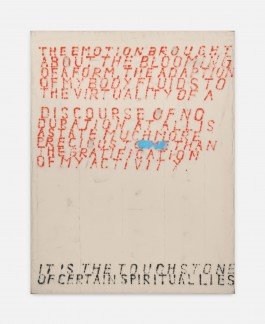 THE EMOTION BROUGHT
ABOUT THE BLOOMING
OF A FORM. THE ADAPTION
OF MY BODY FLUIDS TO
THE VIRTUALITY OF A
DISCOURSE OF NO
DURATION AT ALL IS
A STATE MUCH MORE
PRECIOUS TO ME THAN
THE GRATIFICATION
OF MY ACTIVITY
IT IS THE TOUCHSTONE
OF CERTAIN SPIRITUAL LIES